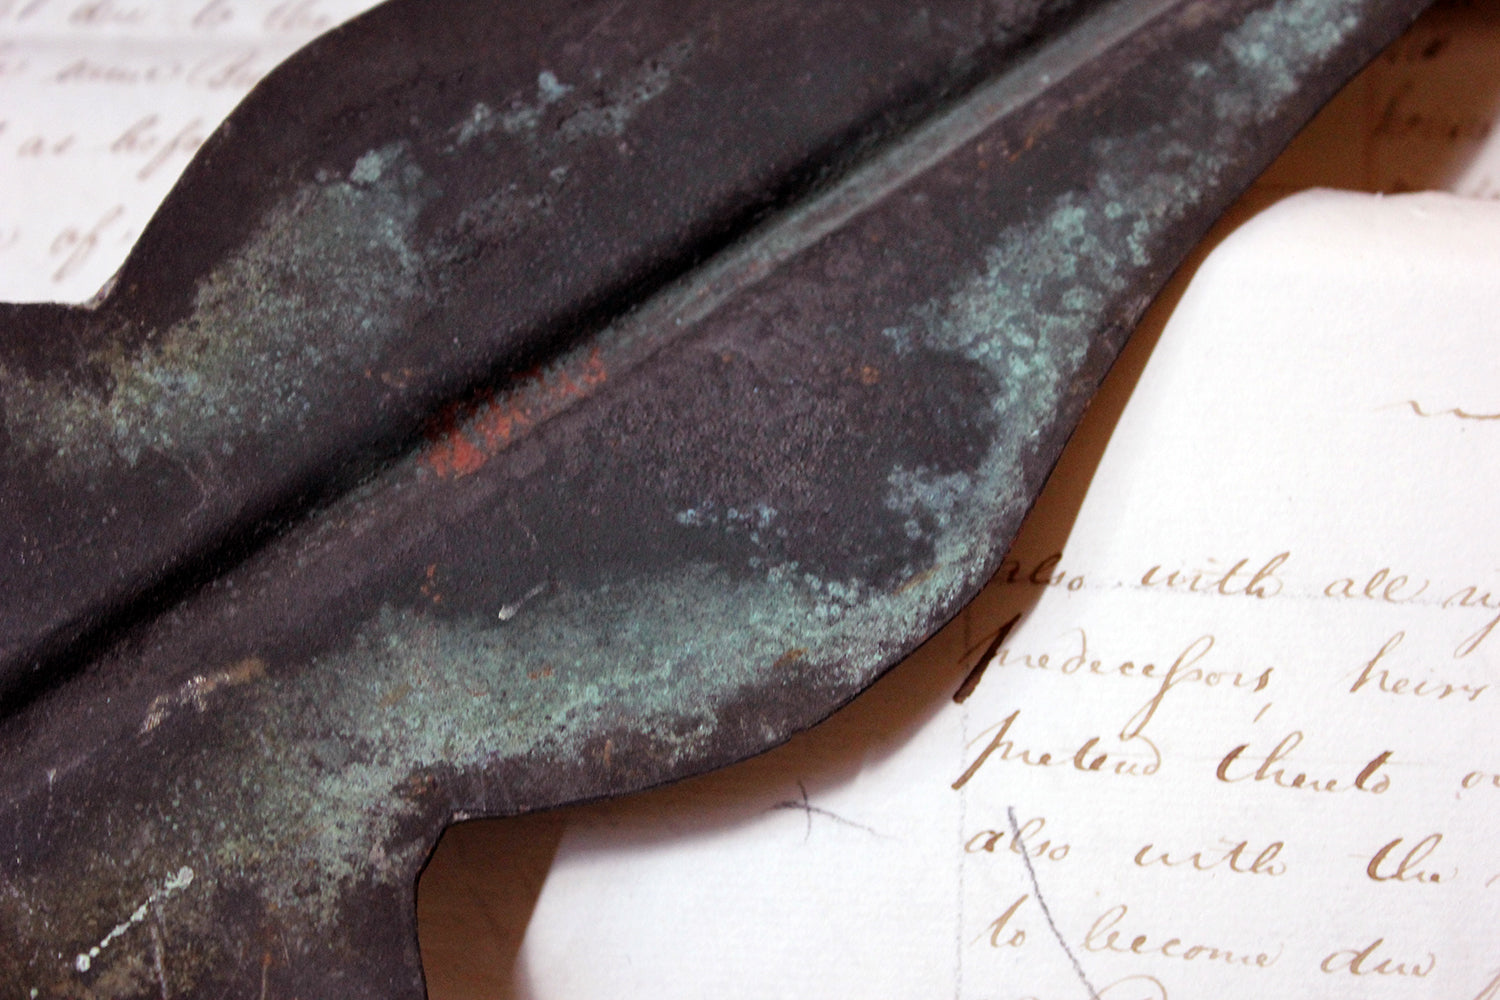 due to the
as befo
of
also with all
predecessors, heirs
pretend thereto or
also with the
to become due